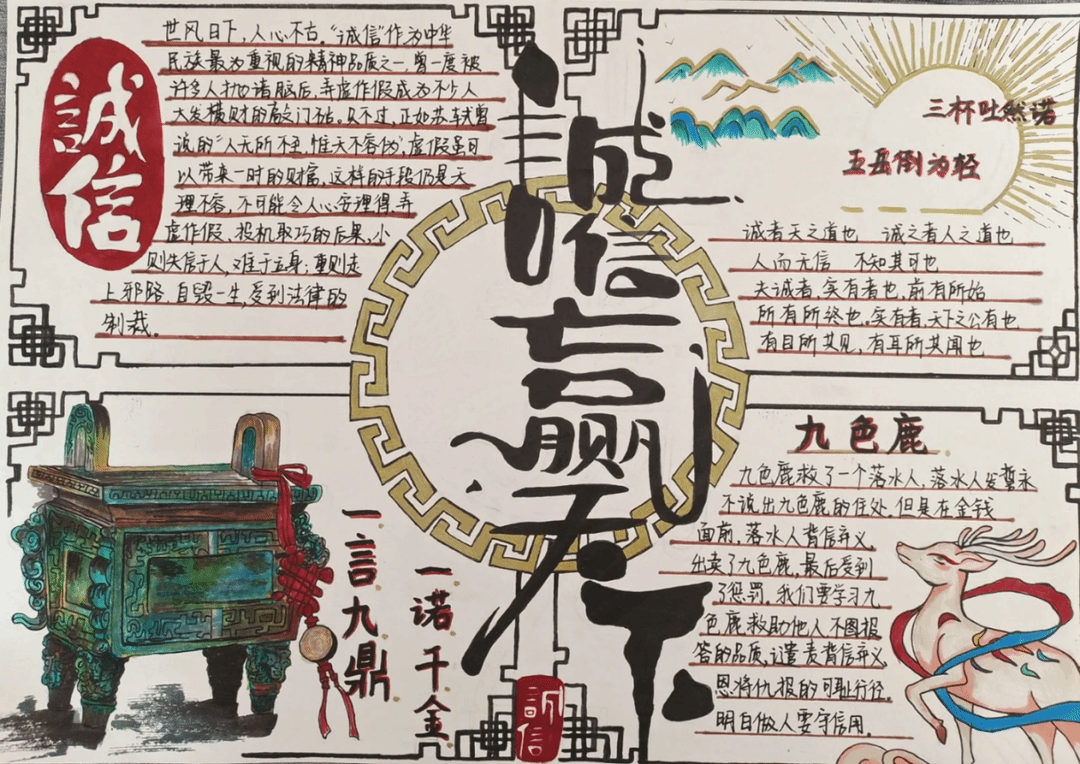 誠信
世风日下，人心不古。“诚信”作为中华
民族最为重视的精神品质之一，曾一度被
许多人抛诸脑后，弄虚作假成为不少人
大发横财的敲门砖。只不过，正如苏轼曾
说的“人无所不至，惟天不容伪，虚假虽可
以带来一时的财富，这样的手段仍是天
理不容，不可能令人心安理得。弄
虚作假、投机取巧的后果，小
则失信于人，难于立身；重则走
上邪路，自毁一生，受到法律的
制裁。
誠信赢天下
三杯吐然诺
五岳倒为轻
诚者天之道也 诚之者人之道也
人而无信 不知其可也
夫诚者，实有者也，前有所始
所有所终也。实有者，天下之公有也
有目所共见，有耳所共闻也
一言九鼎
一诺千金
九色鹿
九色鹿救了一个落水人，落水人发誓永
不说出九色鹿的住处，但是在金钱
面前，落水人背信弃义，
出卖了九色鹿，最后受到
了惩罚。我们要学习九
色鹿救助他人不图报
答的品质，谴责背信弃义，
恩将仇报的可耻行径。
明白做人要守信用。